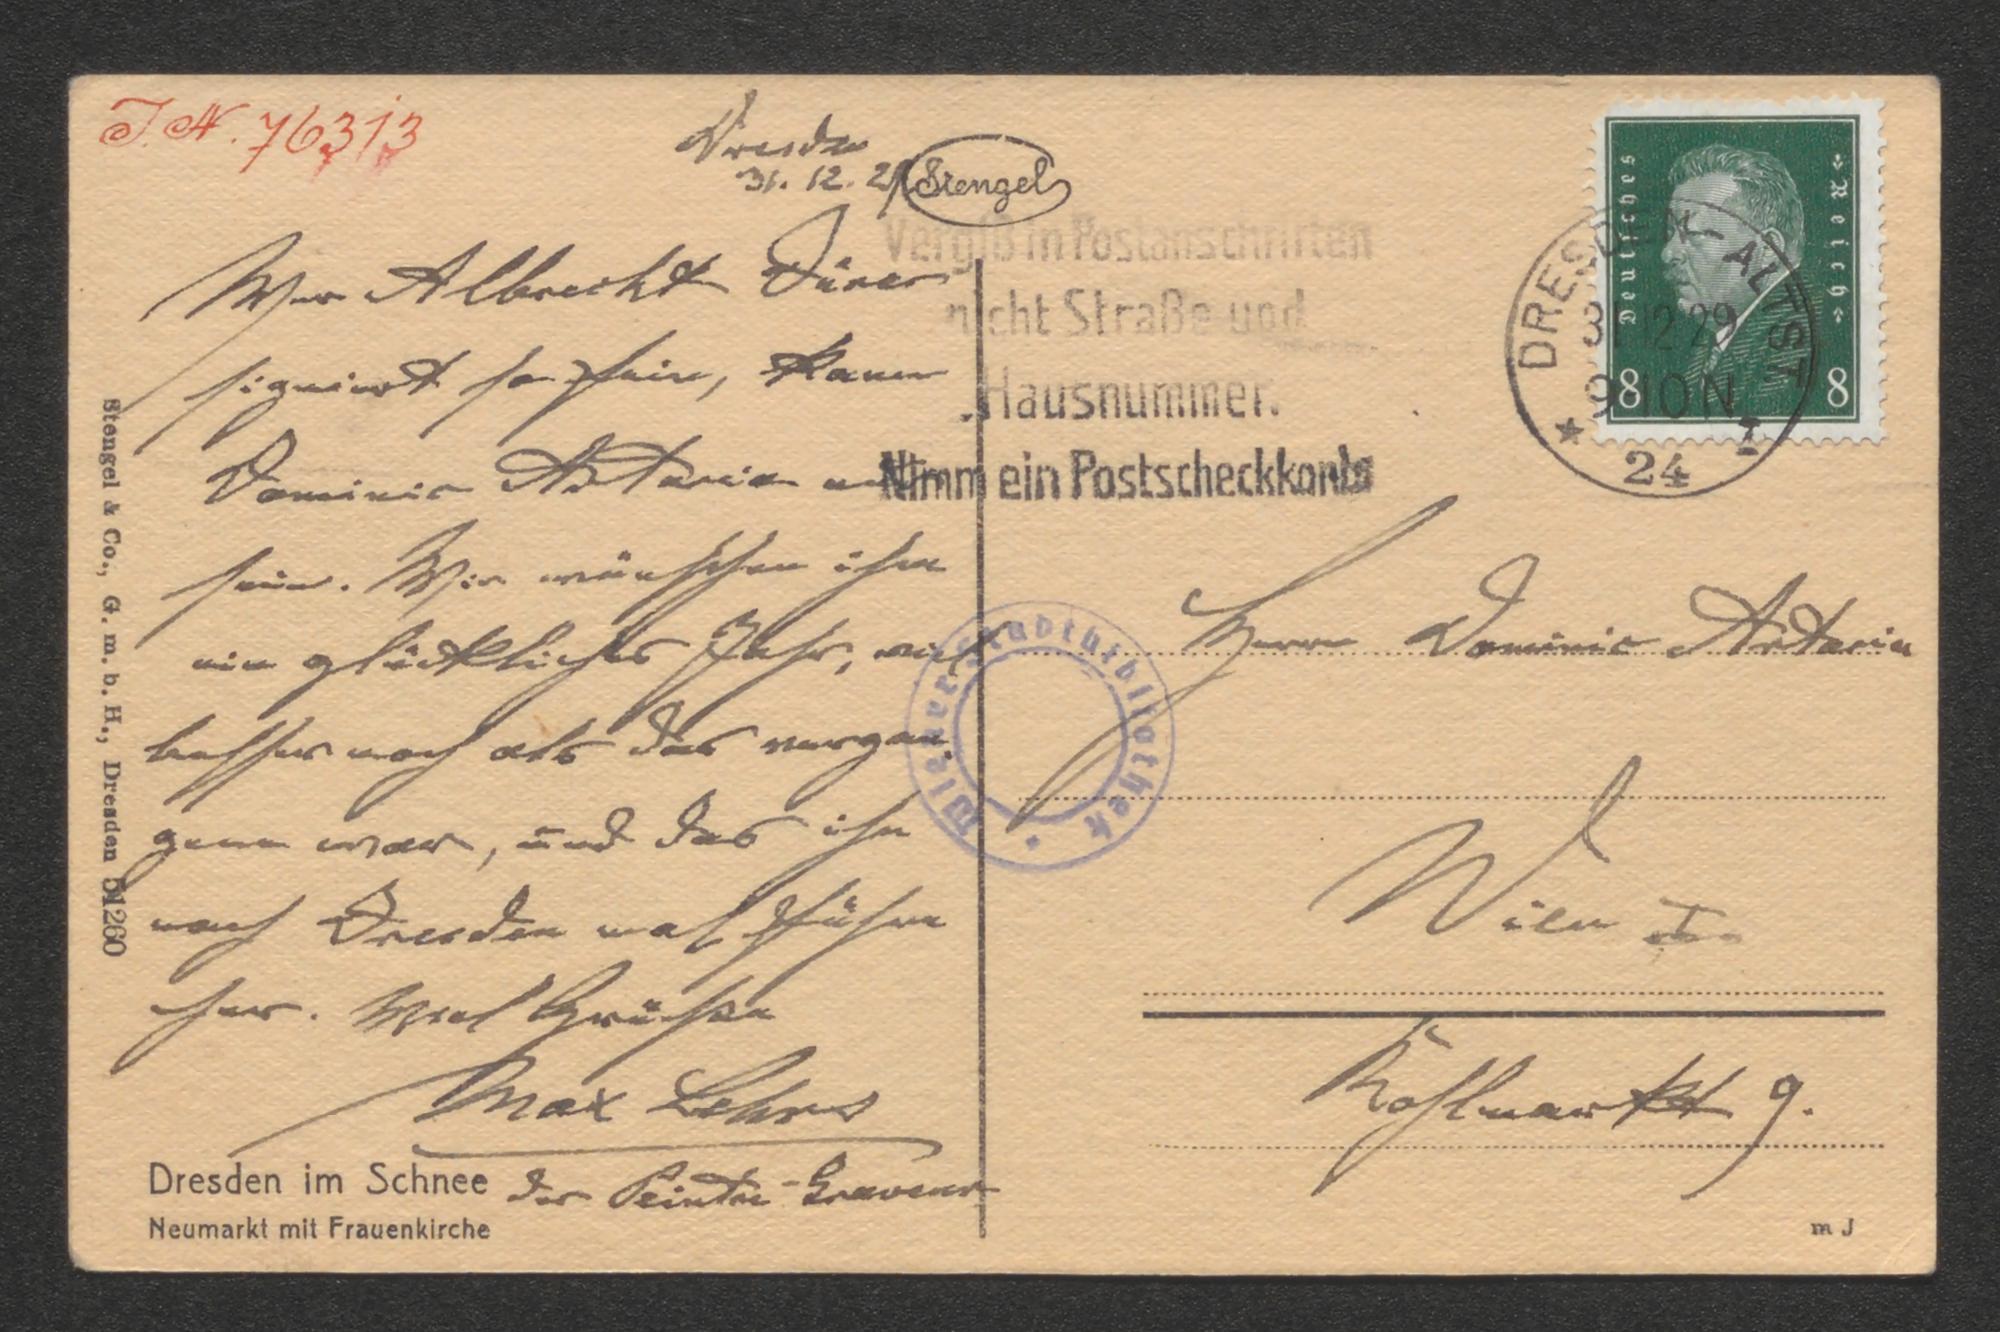 J. N. 76313
Dresden
31. 12. 29
Stengel
Vergiß in Postanschriften
nicht Straße und
Hausnummer.
Nimm ein Postscheckkonto
Deutsches Reich
8 8
DRESDEN-ALTST.
31.12.29
9-10 N
* 24 I
Wer Albrecht Dürer
signiert so fein, kann
Dominic Artaria nur
sein. Wir wünschen ihm
ein glückliches Jahr, viel
besser noch als das vergan-
gene war, und das ihn
nach Dresden mal führe
her. Viel Grüße
Max Lehrs
der Peintre-Graveur
Dresden im Schnee
Neumarkt mit Frauenkirche
Stengel & Co., G. m. b. H., Dresden 51260
Wiener Stadtbibliothek
Herrn Dominic Artaria
Wien I.
Kohlmarkt 9.
m J